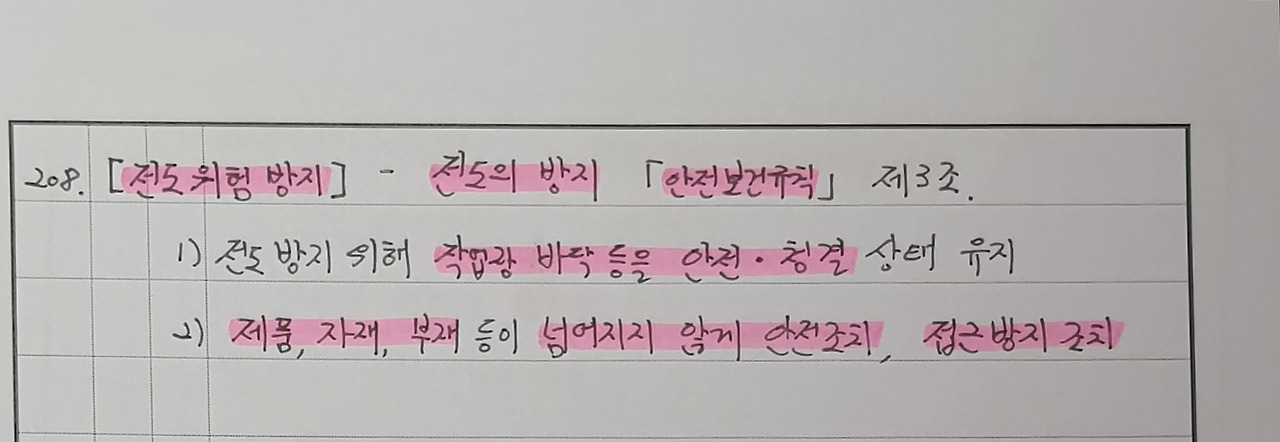 208. [전도 위험 방지] - 전도의 방지 「안전보건규칙」 제3조.
1) 전도 방지 위해 작업장 바닥 등을 안전·청결 상태 유지
2) 제품, 자재, 부재 등이 넘어지지 않게 안전조치, 접근방지 조치